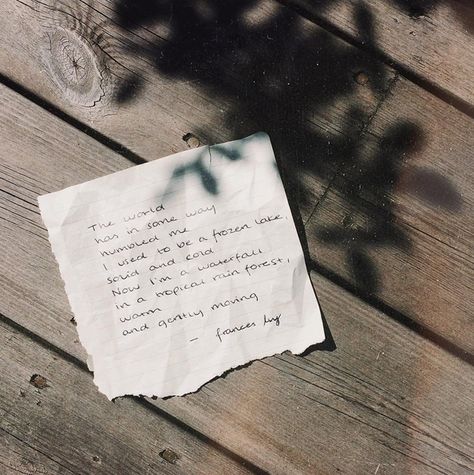 The world
has in some way
humbled me
I used to be a frozen lake,
solid and cold
Now I'm a waterfall
in a tropical rain forest,
warm
and gently moving
— frances